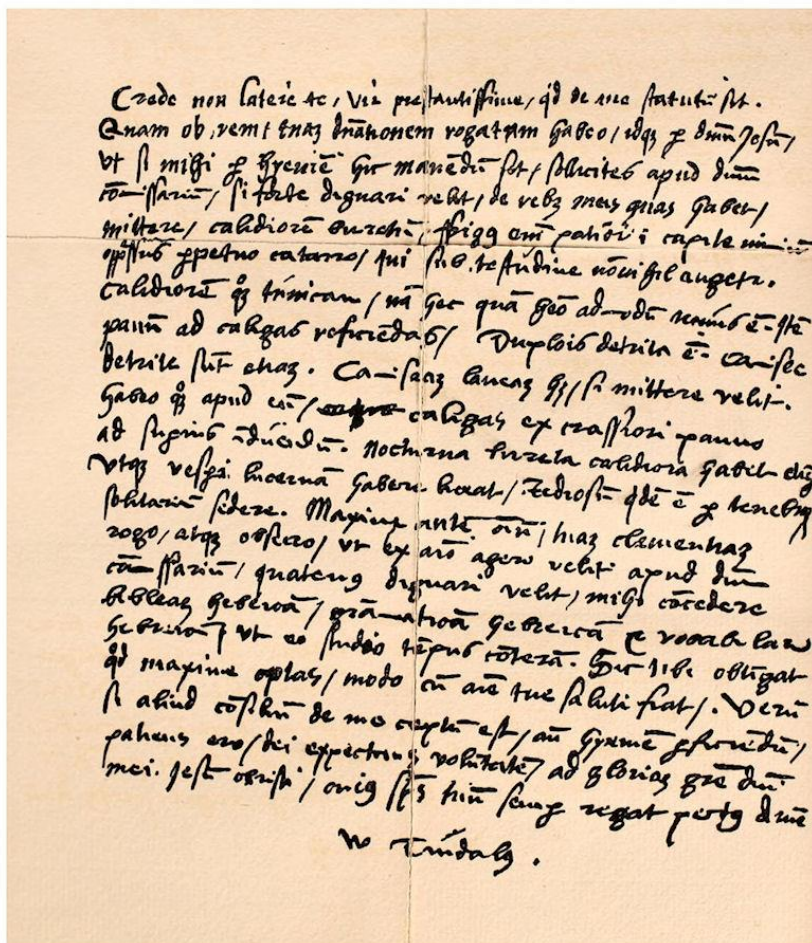 Credo non latere te, vir prestantissime, qd de me statutū sit.
Quam ob rem, tuaz dnātionem rogatam habeo, idqz p dnm Jesū,
Vt si mihi p hyemē hic manēdū sit, sollicites apud dnm
cōmissariū, si forte dignari velit, de rebz meis quas habet,
mittere, calidiorē birethū, ffrigg em patior i capite nimiū
oppssus ppetuo catarro, qui sub testudine nōnihil augetr.
Calidiorē qz tunicam, nā hec quā heo admodū tenuis ē. Itē
pannū ad caligas reficiendas, Duplois detrita ē. camisee
detrite sūt etiaz. Camiseaz laneaz hz, si mittere velit.
habeo qz apud eū, caligas ex crassiori panno
ad supius īduēdū. nocturna bireta calidiora habet etiā
Vtqz vespi lucernā habere liceat, Tediosū qdē ē p tenebras
solitariū sedere. Maxime autē oīm, tuaz clementiaz
rogo, atqz obsecro, vt ex aīo agere velit apud dnm
cōmissariū, quatenus dignari velit, mihi cōcedere
bibleaz hebreicā, grāmaticā hebreicā & vocabulariū
hebreicū, vt eo studio tēpus cōterā. Sic tibi obtingat
qd maxime optas, modo cū aīe tue salute fiat,. Verū
si aliud cōsiliū de me ceptū est, an hyemē pficiēdū,
patiens ero, dei expectans volūtatē, ad gloriaz grē dnī
mei. Jesu christi, cuiq spūs tuū semp regat pectus Amē
W Tindalus .